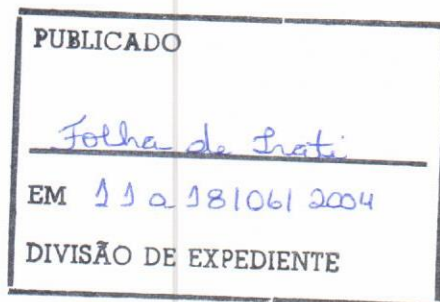 PUBLICADO
Folha de Irati
EM 11 a 18/06/2004
DIVISÃO DE EXPEDIENTE